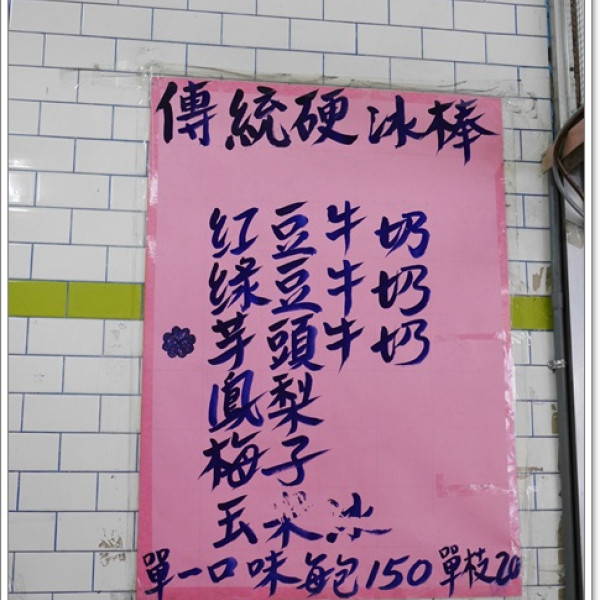 傳統硬冰棒
紅豆牛奶
綠豆牛奶
芋頭牛奶
鳳梨
梅子
玉米冰
單一口味每包150單枝20